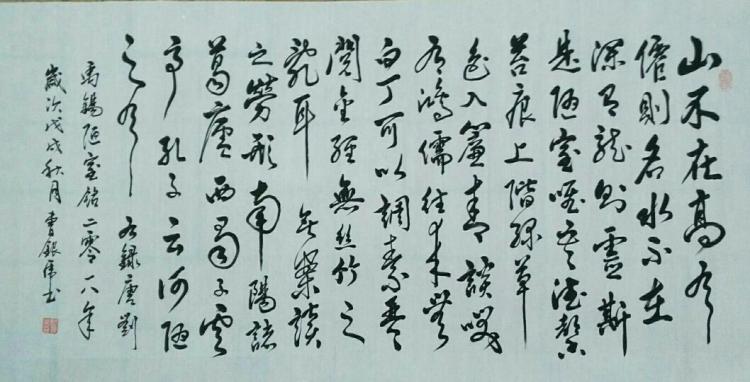 山不在高有
僊則名水不在
深有龍則靈斯
是陋室唯吾德馨
苔痕上階綠草
色入簾青談笑
有鴻儒往來無
白丁可以調素琴
閱金經無絲竹之
亂耳無案牘
之勞形南陽諸
葛廬西蜀子雲
亭孔子云何陋
之有 右錄唐劉
禹錫陋室銘二零一八年
歲次戊戌秋月曹銀書